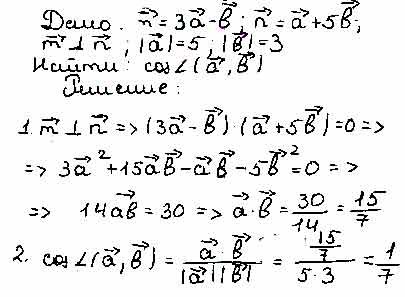 Дано: n⃗ = 3a⃗ - b⃗; n⃗ = a⃗ + 5b⃗;
m⃗ ⊥ n⃗; |a⃗| = 5; |b⃗| = 3
Найти: cos∠(a⃗, b⃗)
Решение:
1. m⃗ ⊥ n⃗ => (3a⃗ - b⃗)·(a⃗ + 5b⃗) = 0 =>
=> 3a⃗² + 15a⃗b⃗ - a⃗b⃗ - 5b⃗² = 0 =>
=> 14a⃗b⃗ = 30 => a⃗·b⃗ = 30/14 = 15/7
2. cos∠(a⃗, b⃗) = a⃗·b⃗/|a⃗||b⃗| = (15/7)/(5·3) = 1/7